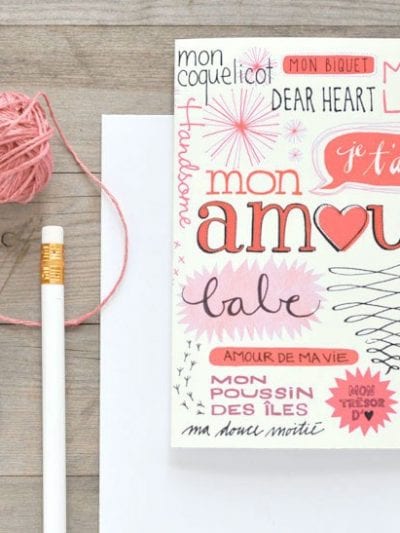 mon
coquelicot
MON BIQUET
DEAR HEART
Handsome
je t'a
mon
amou
babe
AMOUR DE MA VIE
MON
POUSSIN
DES ÎLES
MON
TRÉSOR
D'
ma douce moitié